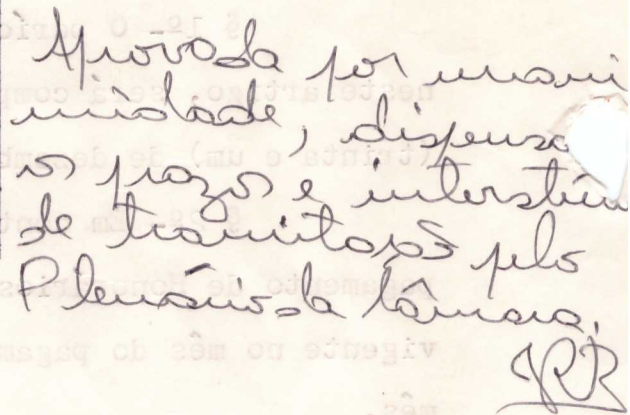 Aprovada por unani
midade, dispensa
os prazos e interstíci
de tramitação pelo
Plenário da Câmara.